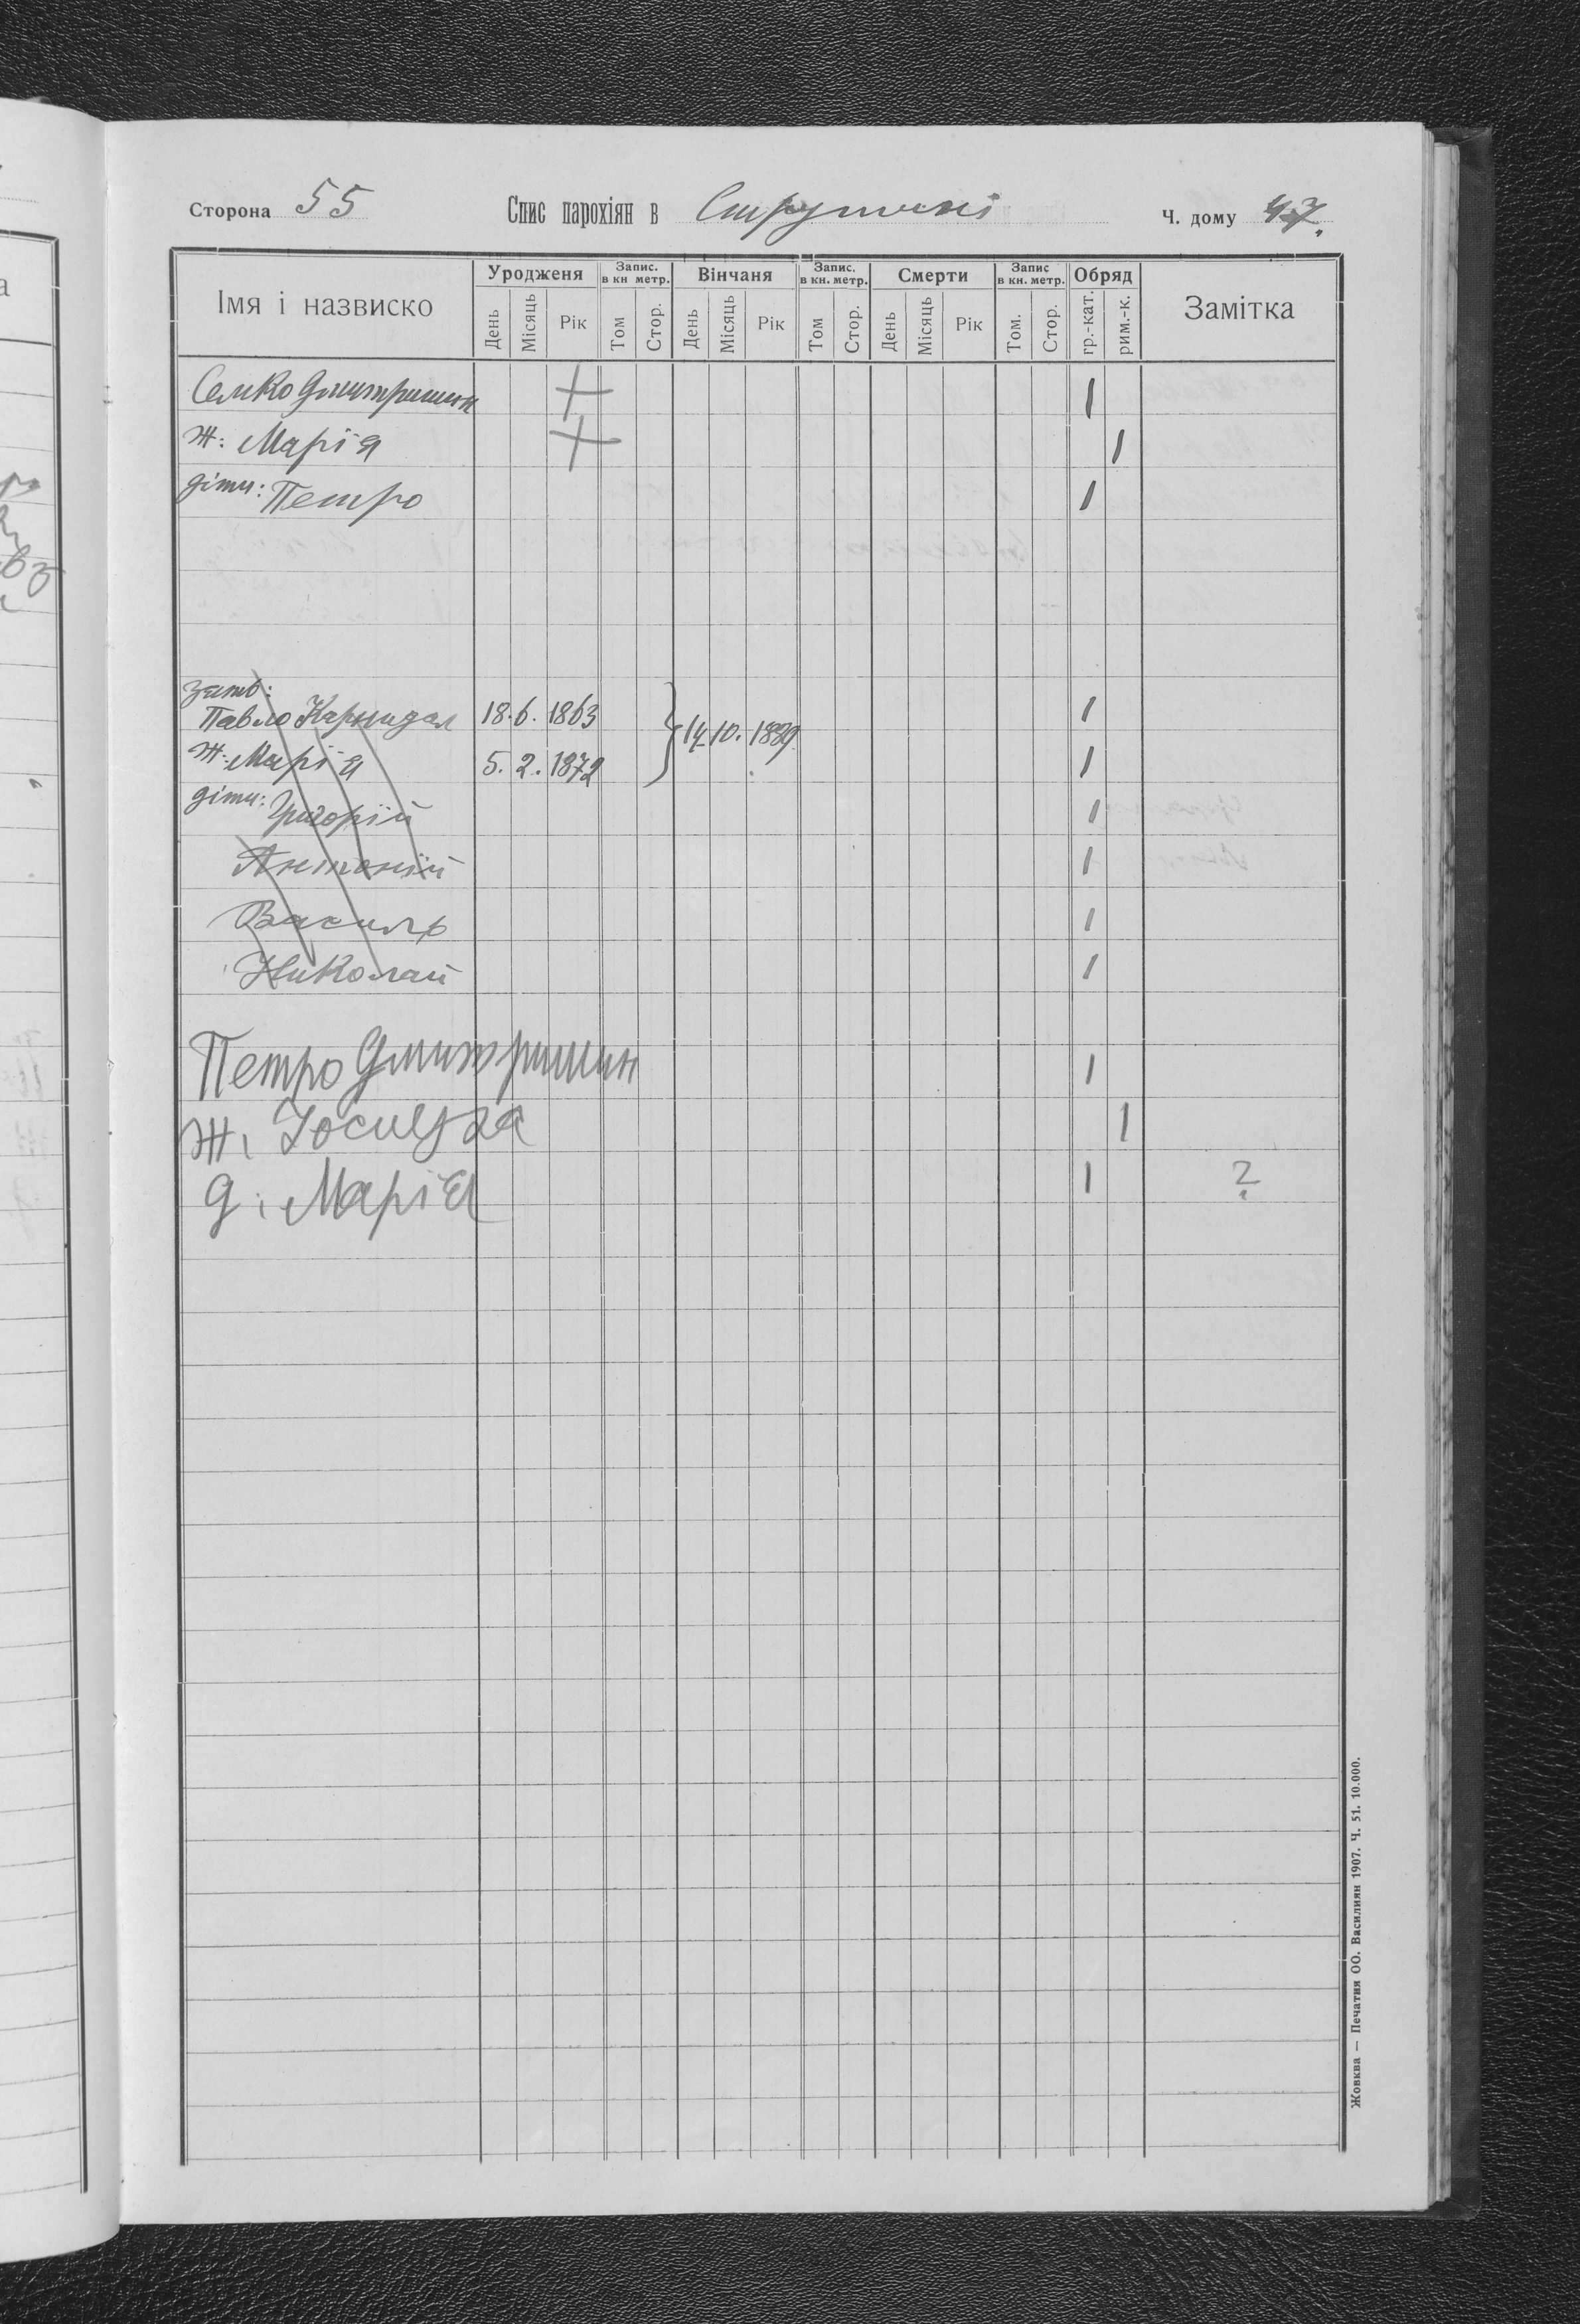 Сторона 55 Спис парохіян в Струтині Ч. дому 47.
Імя і назвиско Уродженя Запис. в кн метр. Вінчаня Запис. в кн. метр. Смерти Запис в кн. метр. Обряд Замітка
День Місяць Рік Том Стор. День Місяць Рік Том Стор. День Місяць Рік Том. Стор. гр.-кат. рим.-к.
Семко Дмитришин + 1
ж: Марія + 1
діти: Петро 1
зять:
Павло 18. 6. 1863 1
ж: Марія 5. 2. 1872 } 14 10. 1889. 1
діти: Григорій 1
Антоній 1
Василь 1
Николай 1
Петро Дмитришин 1
ж. 1
д: Марія 1 ?
Жовква — Печатня ОО. Василиян 1907. Ч. 51. 10.000.